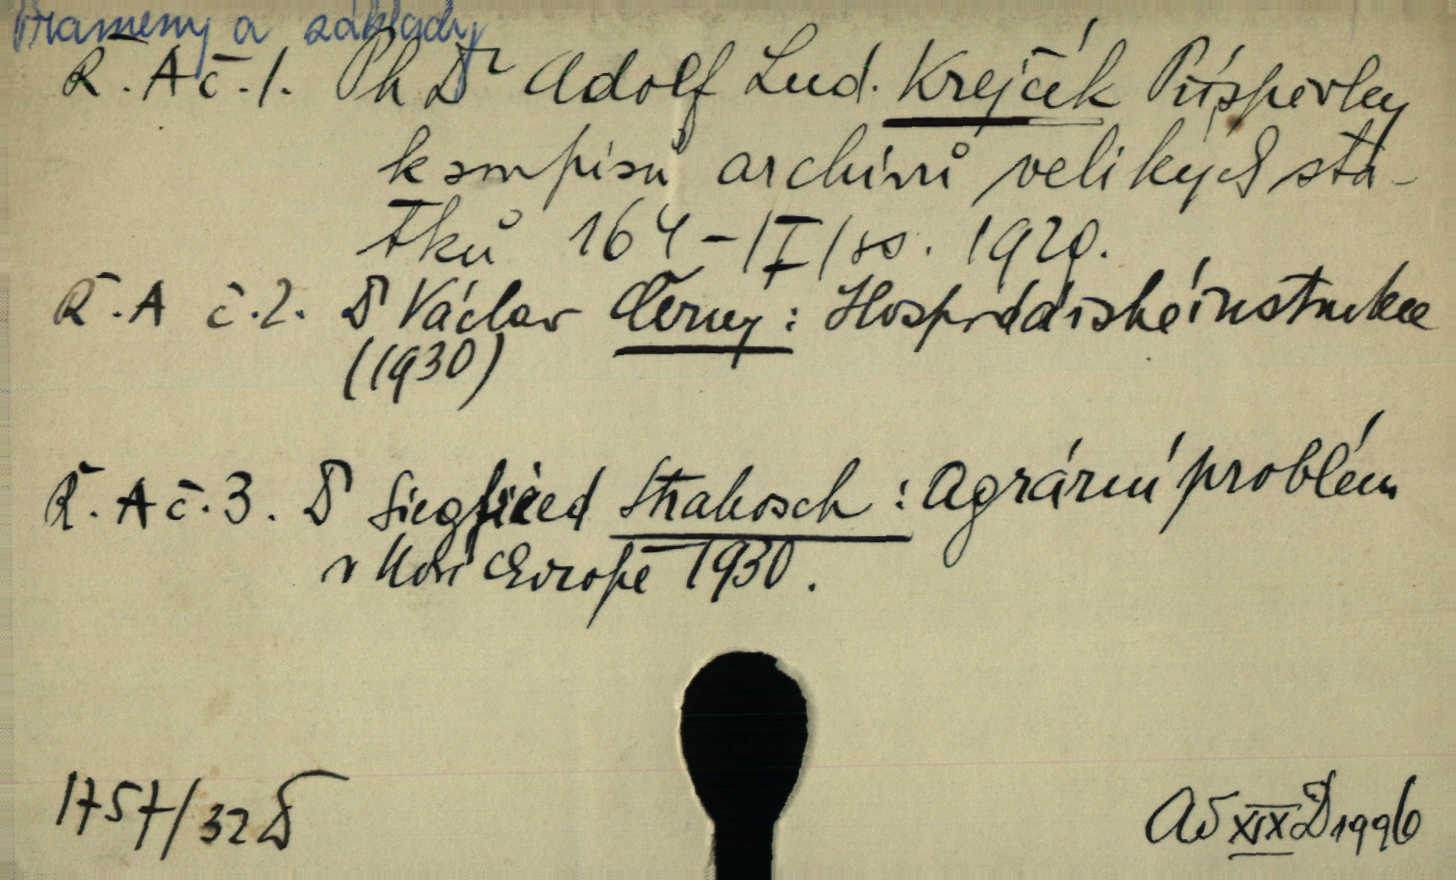 Prameny a základy
Ř. A č. 1. Ph Dr Adolf Lud. Krejčík Příspěvky
k soupisu archivů velikých sta-
tků 164 - /I/ ss. 1929.
Ř. A č. 2. Dr Václav Černý: Hospodářské instrukce
(1930)
Ř. A č. 3. Dr Siegfried Strakosch: Agrární problém
v Nové Evropě 1930.
1757/32 D
XIX D 1996